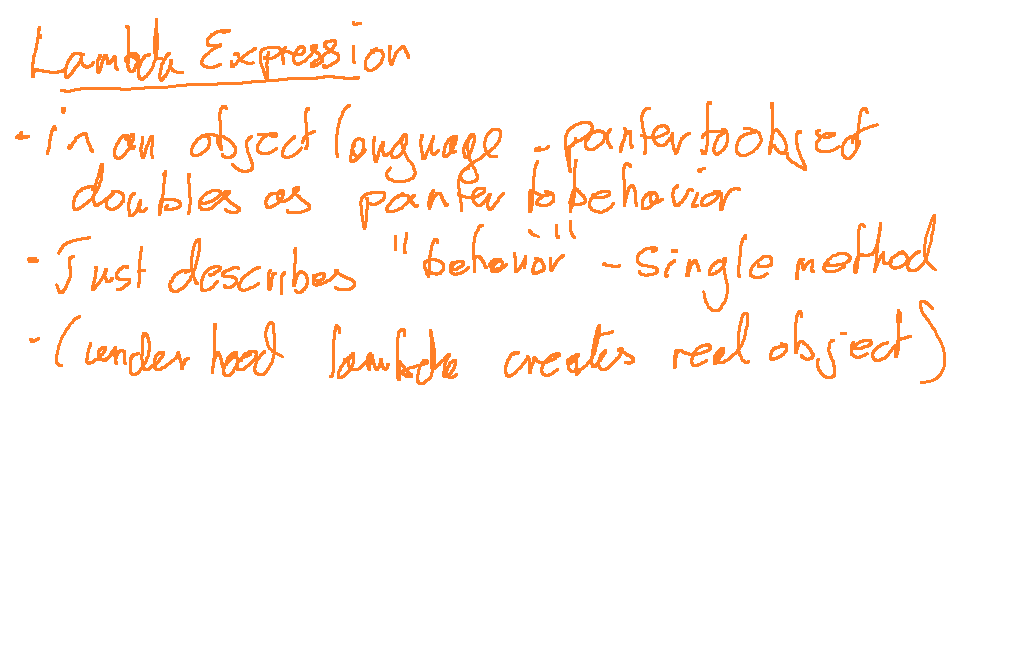 Lambda Expression
- in an object language - pointer to object
doubles as pointer to behavior
- Just describes "behavior" - single method
- (under hood lambda creates real object)